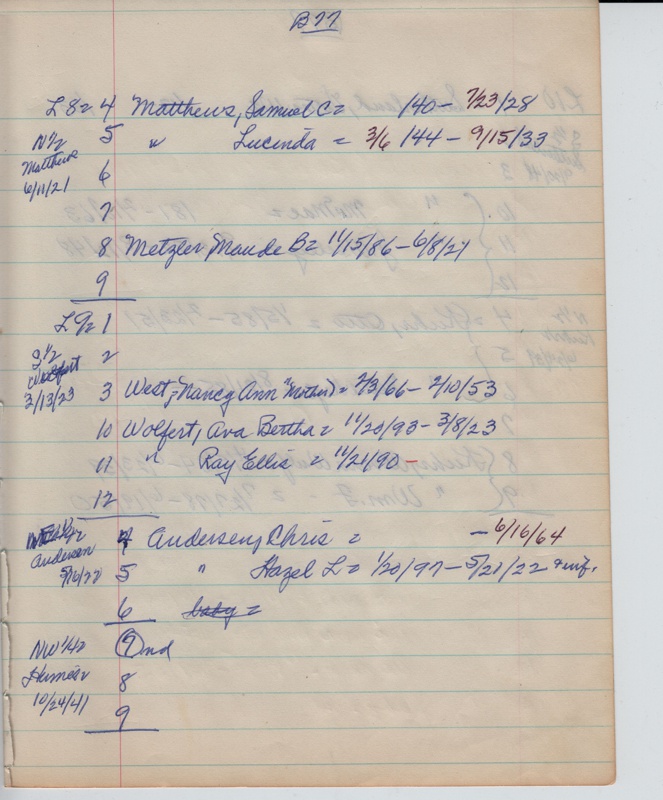 B77
L8= 4 Matthews, Samuel C= /40 – 7/23/28
N 1/2 5 " Lucinda = 3/6/44 – 9/15/33
Matthews 6
6/11/21
7
8 Metzler, Maude B= 11/15/86 – 6/8/21
9
L9= 1
S 1/2 2
Wolfert
3/13/23 3 West, Nancy Ann "Mother) = 2/3/66 – 2/10/53
10 Wolfert, Ava Bertha = 11/20/93 – 3/8/23
11 " Ray Ellis = 11/21/90 –
12
4 Andersen, Chris = – 6/16/64
Andersen
5/16/22 5 " Hazel L= 1/20/97 – 5/21/22 & inf.
6 baby =
NW 1/4= 7 nd
8
10/24/41
9